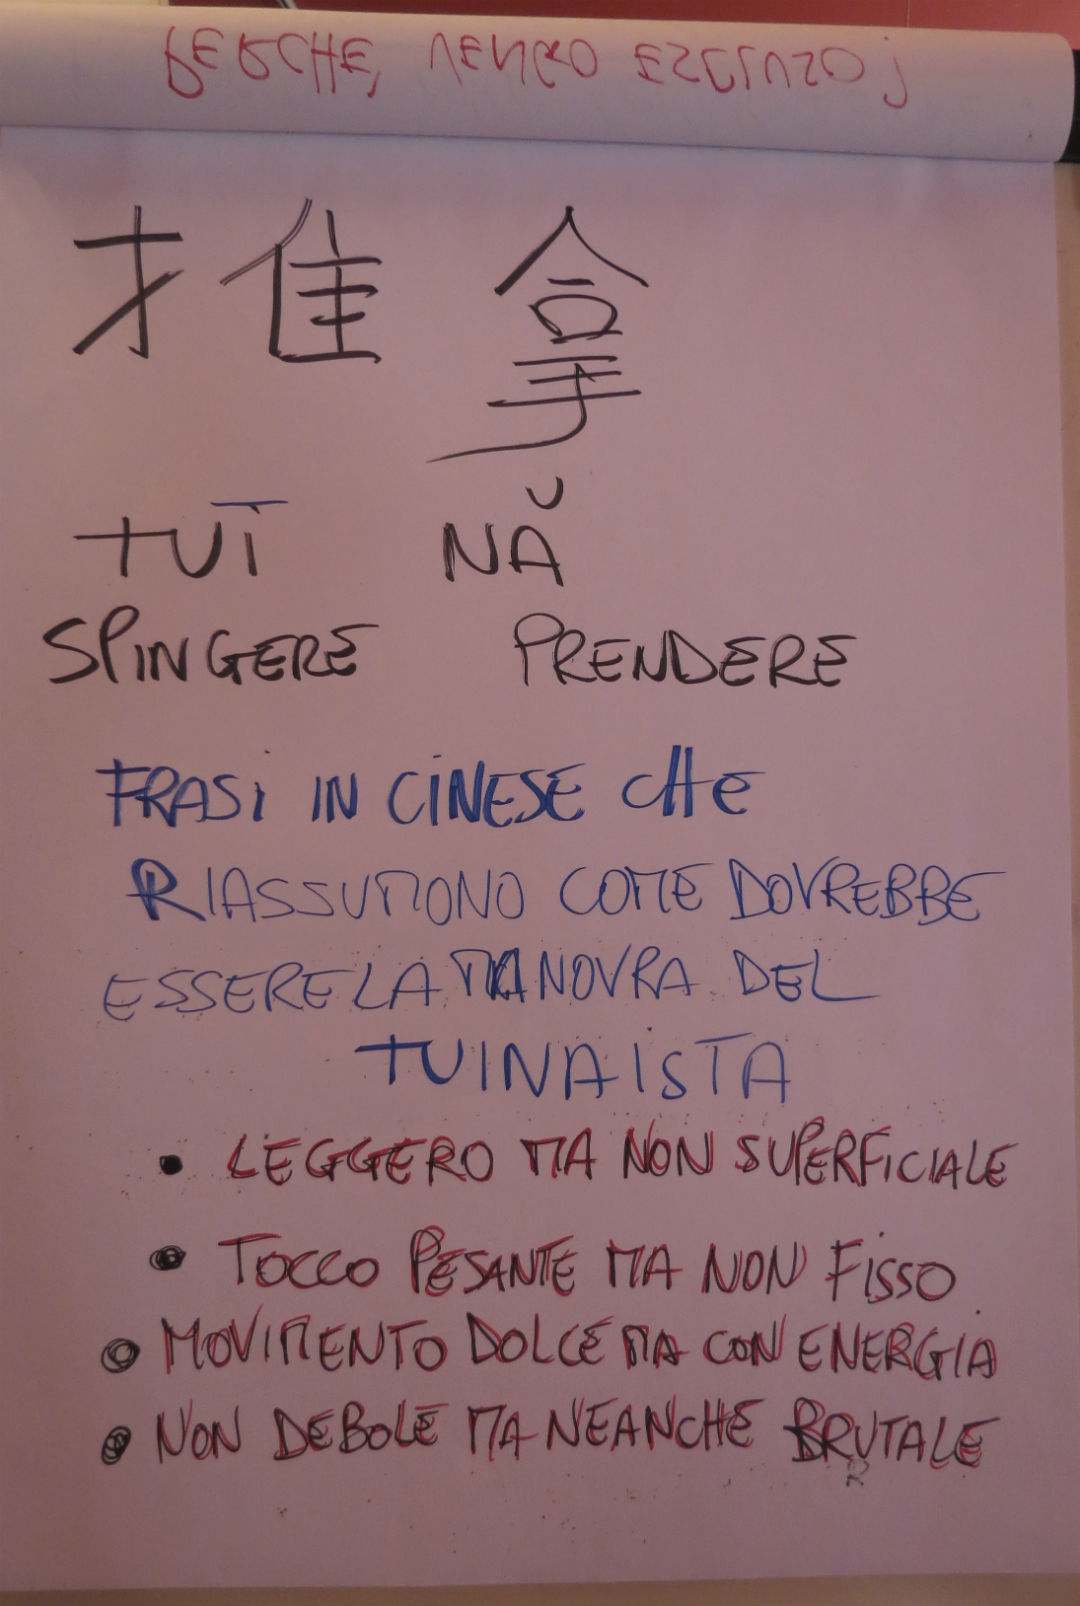 PERCHE, VENGO ESCLUSO?
推 拿
TUĪ NĂ
SPINGERE PRENDERE
FRASI IN CINESE CHE
RIASSUMONO COME DOVREBBE
ESSERE LA MANOVRA DEL
TUINAISTA
• LEGGERO MA NON SUPERFICIALE
• TOCCO PESANTE MA NON FISSO
• MOVIMENTO DOLCE MA CON ENERGIA
• NON DEBOLE MA NEANCHE BRUTALE
R